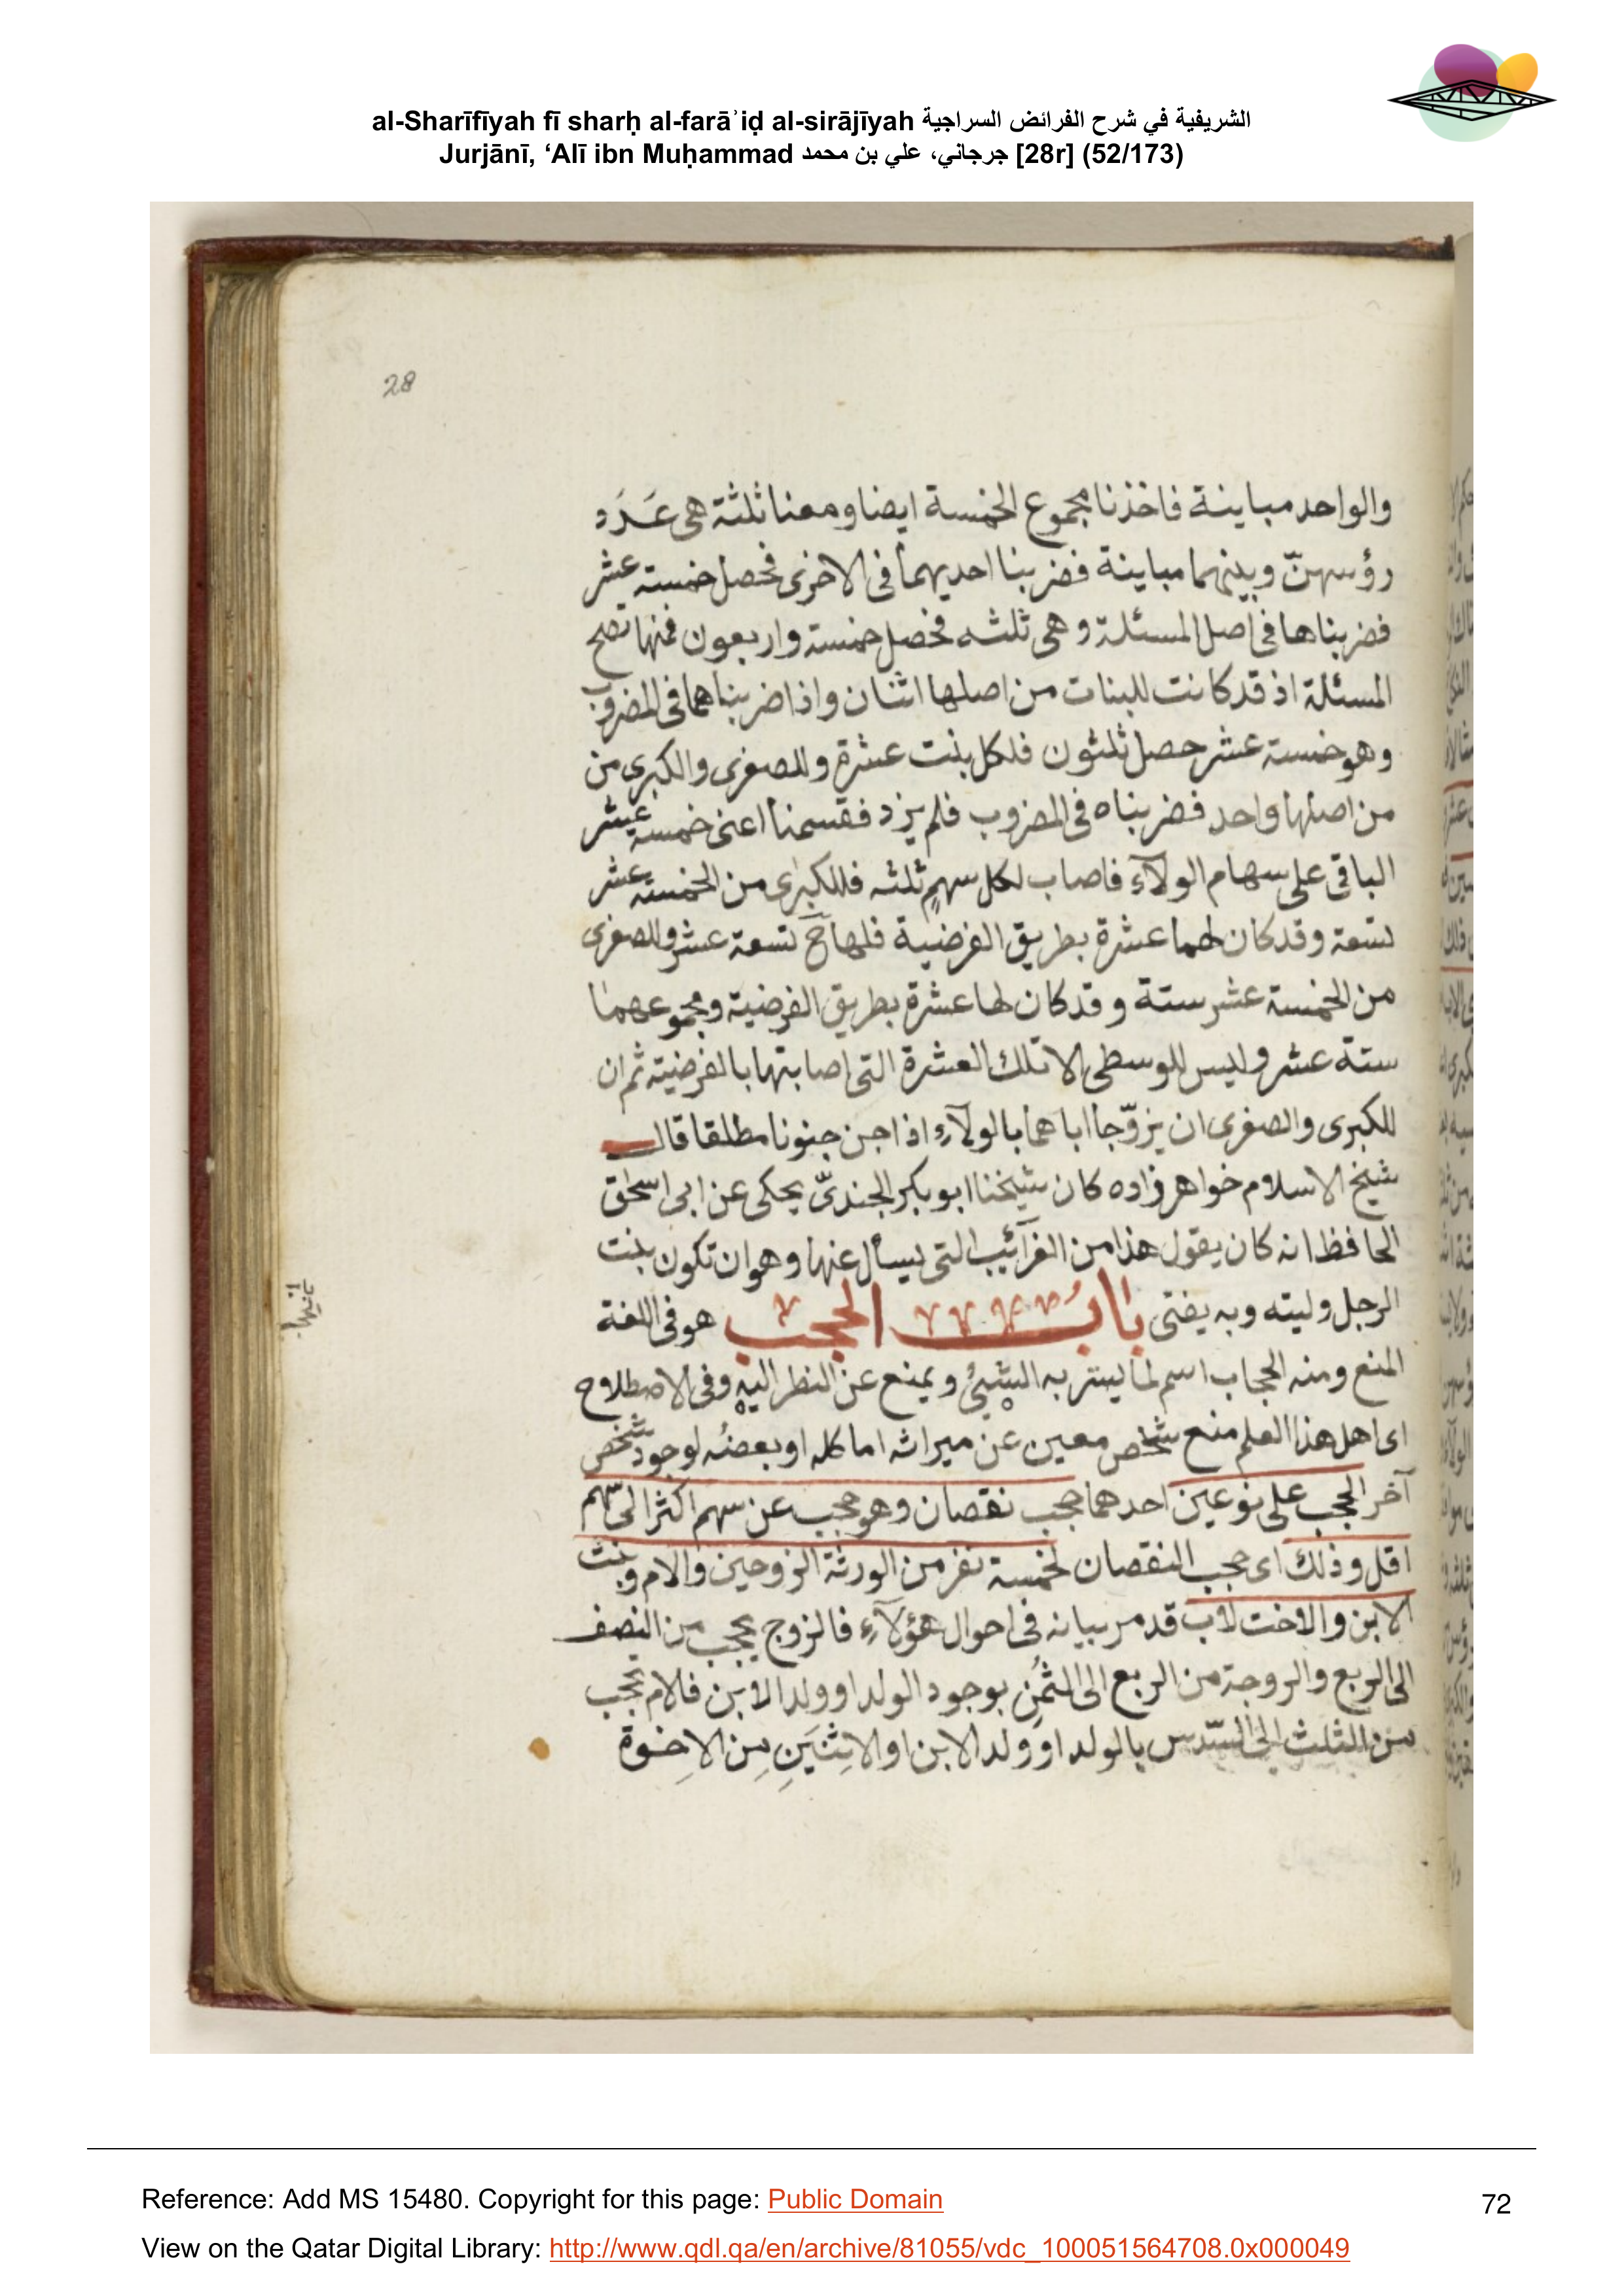 al-Sharīfīyah fī sharḥ al-farāʾiḍ al-sirājīyah الشريفية في شرح الفرائض السراجية
Jurjānī, ‘Alī ibn Muḥammad جرجاني، علي بن محمد [28r] (52/173)
28
والواحد مباينة فاخذنا مجموع الخمسة ايضا ومعنا ثلثة هى عَدَد
رؤسهنّ وبينهما مباينة فضربنا احديهما فى الاخرى فحصل خمسة عشر
فضربناها فى اصل المسئلة وهى ثلثه فحصل خمسة واربعون فمنها تصح
المسئلة اذ قد كانت للبنات من اصلها اثنان واذا ضربناهما فى المضروب
وهو خمسة عشر حصل ثلثون فلكل بنت عشرة وللصغرى والكبرى من
من اصلها واحد فضربناه فى المضروب فلم يزد فقسمنا اعنى خمسة عشر
الباقى على سهام الولآء فاصاب لكل سهمٍ ثلثه فللكبرى من الخمسة عشر
تسعة وقد كان لهما عشرة بطريق الفرضية فلها ح تسعة عشر وللصغرى
من الخمسة عشر ستة وقد كان لها عشرة بطريق الفرضية ومجموعهما
ستة عشر وليس للوسطى الا تلك العشرة التى اصابتها بالفرضية ثم ان
للكبرى والصغرى ان يزوّجا اباهما بالولآء اذا جن جنونا مطلقا قال
شيخ الاسلام خواهر زاده كان شيخنا ابو بكر الجندىّ يحكى عن ابى اسحٰق
الحافظ انه كان يقول هذا من الغرآئب التى يسأل عنها وهو ان تكون بنت
الرجل وليته وبه يفتى بابُ الحجب هو فى اللغة
المنع ومنه الحجاب اسم لما يستر به الشيئ ويمنع عن النظر اليه وفى الاصطلاح
اى اهل هذا العلم منع شخص معين عن ميراثه اما كله او بعضُه لوجود شخص
آخر الحجب على نوعين احدهما حجب نقصان وهو حجب عن سهم اكثر الى سهم
اقل وذلك اى حجب النقصان لخمسة نفر من الورثة الزوجين والام وبنت
الابن والاخت لاب قد مر بيانه فى احوال هؤلآء فالزوج يحجب من النصف
الى الربع والزوجة من الربع الى الثمُن بوجود الولد او ولد الابن فلام تحجب
من الثلث الى السّدس بالولد او ولد الابن او الاِثنَينِ مِن الاِخوة
Reference: Add MS 15480. Copyright for this page: Public Domain
72
View on the Qatar Digital Library: http://www.qdl.qa/en/archive/81055/vdc_100051564708.0x000049